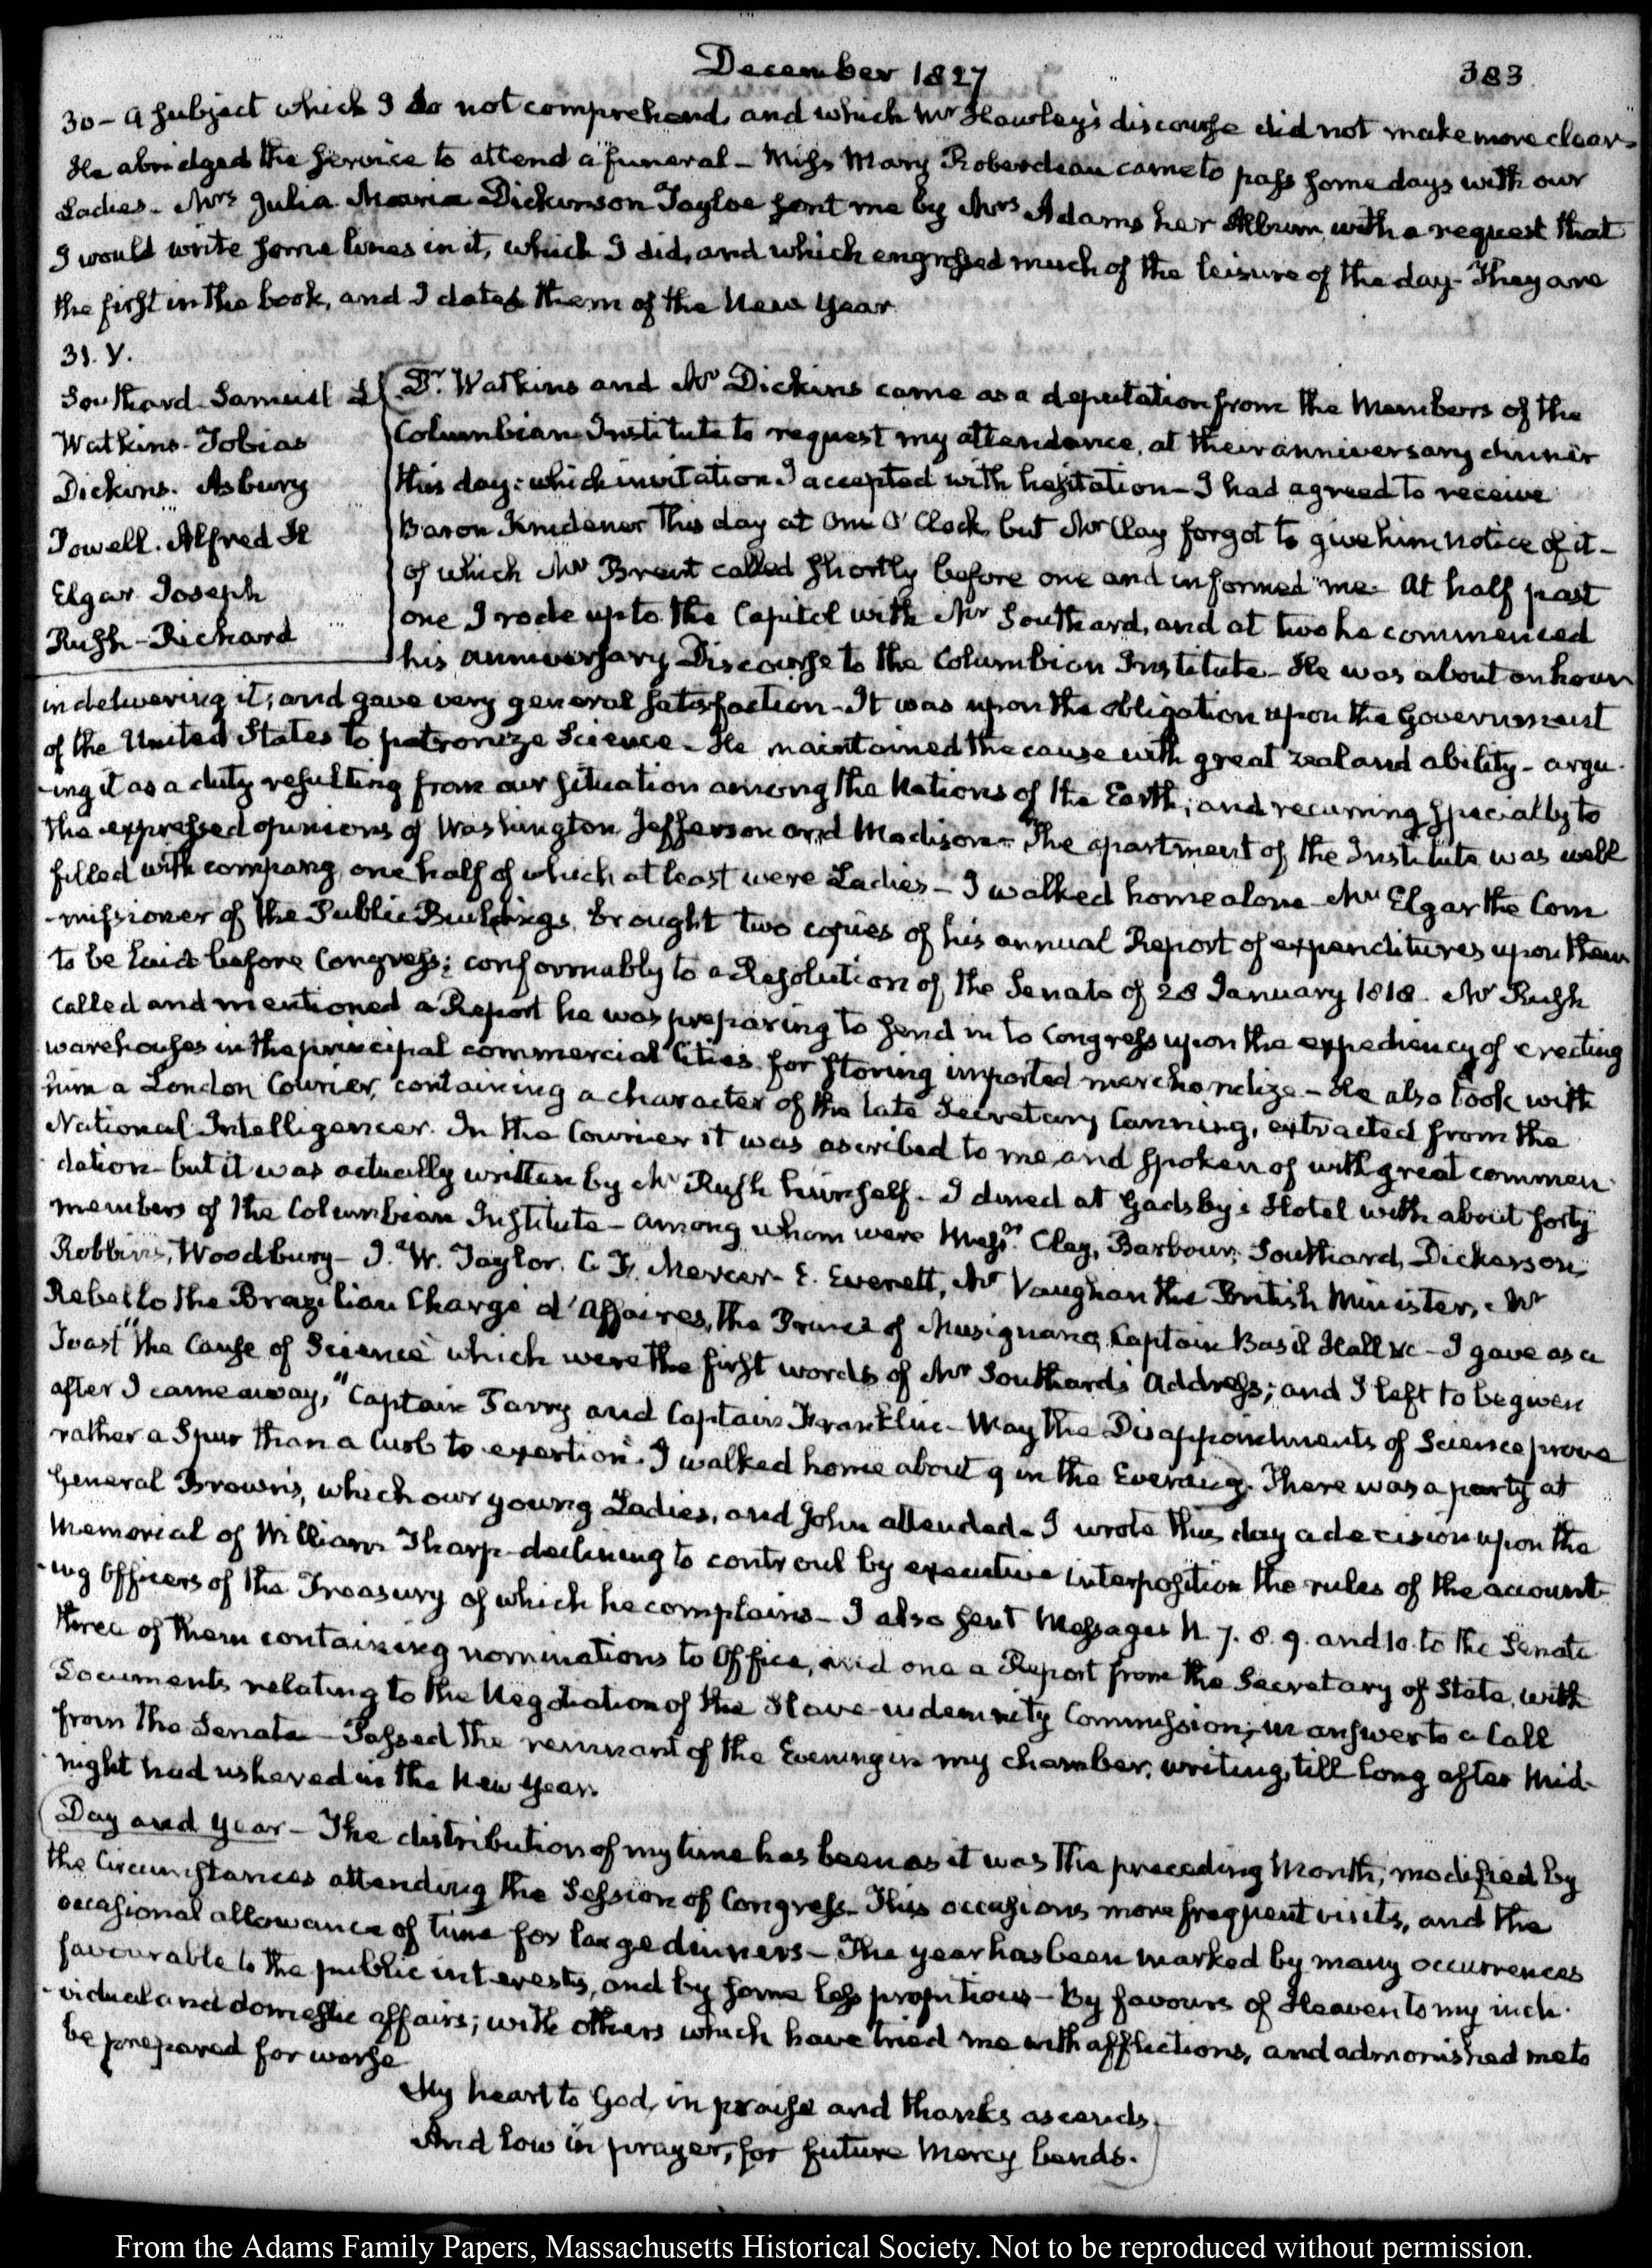 December 1827
383
30 – a subject which I do not comprehend, and which Mr Hawley's discourse did not make more clear –
He abridged the service to attend a funeral – Miss Mary Roberdeau came to pass some days with our
Ladies – Mrs Julia Maria Dickinson Tayloe sent me by Mrs Adams her Album, with a request that
I would write some lines in it, which I did, and which engrossed much of the leisure of the day – They are
the first in the book, and I dated them of the New Year
31. V.
Southard Samuel L
Watkins – Tobias
Dickins. Asbury
Powell. Alfred H
Elgar Joseph
Rush – Richard
Dr. Watkins and Mr Dickins came as a deputation from the Members of the
Columbian Institute to request my attendance, at their anniversary dinner
this day: which invitation I accepted with hesitation – I had agreed to receive
Baron Krudener this day at One O'Clock, but Mr Clay forgot to give him notice of it –
of which Mr Brent called shortly before one and informed me. At half past
one I rode up to the Capitol with Mr Southard, and at two he commenced
his anniversary Discourse to the Columbian Institute – He was about an hour
in delivering it; and gave very general satisfaction – It was upon the obligation upon the Government
of the United States to patronize Science – He maintained the cause with great zeal and ability – argu-
-ing it as a duty resulting from our situation among the Nations of the Earth; and recurring specially to
the expressed opinions of Washington Jefferson and Madison – The apartment of the Institute was well
filled with company, one half of which at least were Ladies – I walked home alone – Mr Elgar the Com
-missioner of the Public Buildings, brought two copies of his annual Report of expenditures upon them
to be laid before Congress; conformably to a Resolution of the Senate of 28 January 1818. Mr Rush
called and mentioned a Report he was preparing to send in to Congress upon the expediency of erecting
warehouses in the principal commercial Cities for storing imported merchandize – He also took with
him a London Courier, containing a character of the late Secretary Canning, extracted from the
National Intelligencer. In the Courier it was ascribed to me, and spoken of with great commen-
dation – but it was actually written by Mr Rush himself – I dined at Gadsby's Hotel with about forty
members of the Columbian Institute – among whom were Messrs. Clay, Barbour, Southard, Dickerson,
Robbins, Woodbury – J. W. Taylor. C. F. Mercer – E. Everett, Mr Vaughan the British Minister, Mr
Rebello the Brazilian Chargé d'Affaires, the Prince of Musignano, Captain Basil Hall &c – I gave as a
Toast "the Cause of Science" which were the first words of Mr Southard's Address; and I left to be given
after I came away, "Captain Parry and Captain Franklin – May the Disappointments of Science prove
rather a Spur than a Curb to exertion". I walked home about 9 in the Evening. There was a party at
General Brown's, which our young Ladies, and John attended – I wrote this day a decision upon the
Memorial of William Tharp – declining to controul by executive interposition the rules of the account-
-ing Officers of the Treasury of which he complains – I also sent Messages N. 7. 8. 9. and 10. to the Senate
three of them containing nominations to Office, and one a Report from the Secretary of State, with
Documents relating to the Negotiation of the Slave-indemnity Commission; in answer to a Call
from the Senate – Passed the remnant of the Evening in my chamber, writing, till long after Mid-
night had ushered in the New Year.
Day and year – The distribution of my time has been as it was the preceding Month, modified by
the Circumstances attending the Session of Congress – This occasions more frequent visits, and the
occasional allowance of time for large dinners – The year has been marked by many occurrences
favourable to the public interests, and by some less propitious – By favours of Heaven to my indi-
-vidual and domestic affairs; with others which have tried me with afflictions, and admonished me to
be prepared for worse
My heart to God, in praise and thanks ascends,
And low in prayer, for future Mercy bends.
From the Adams Family Papers, Massachusetts Historical Society. Not to be reproduced without permission.